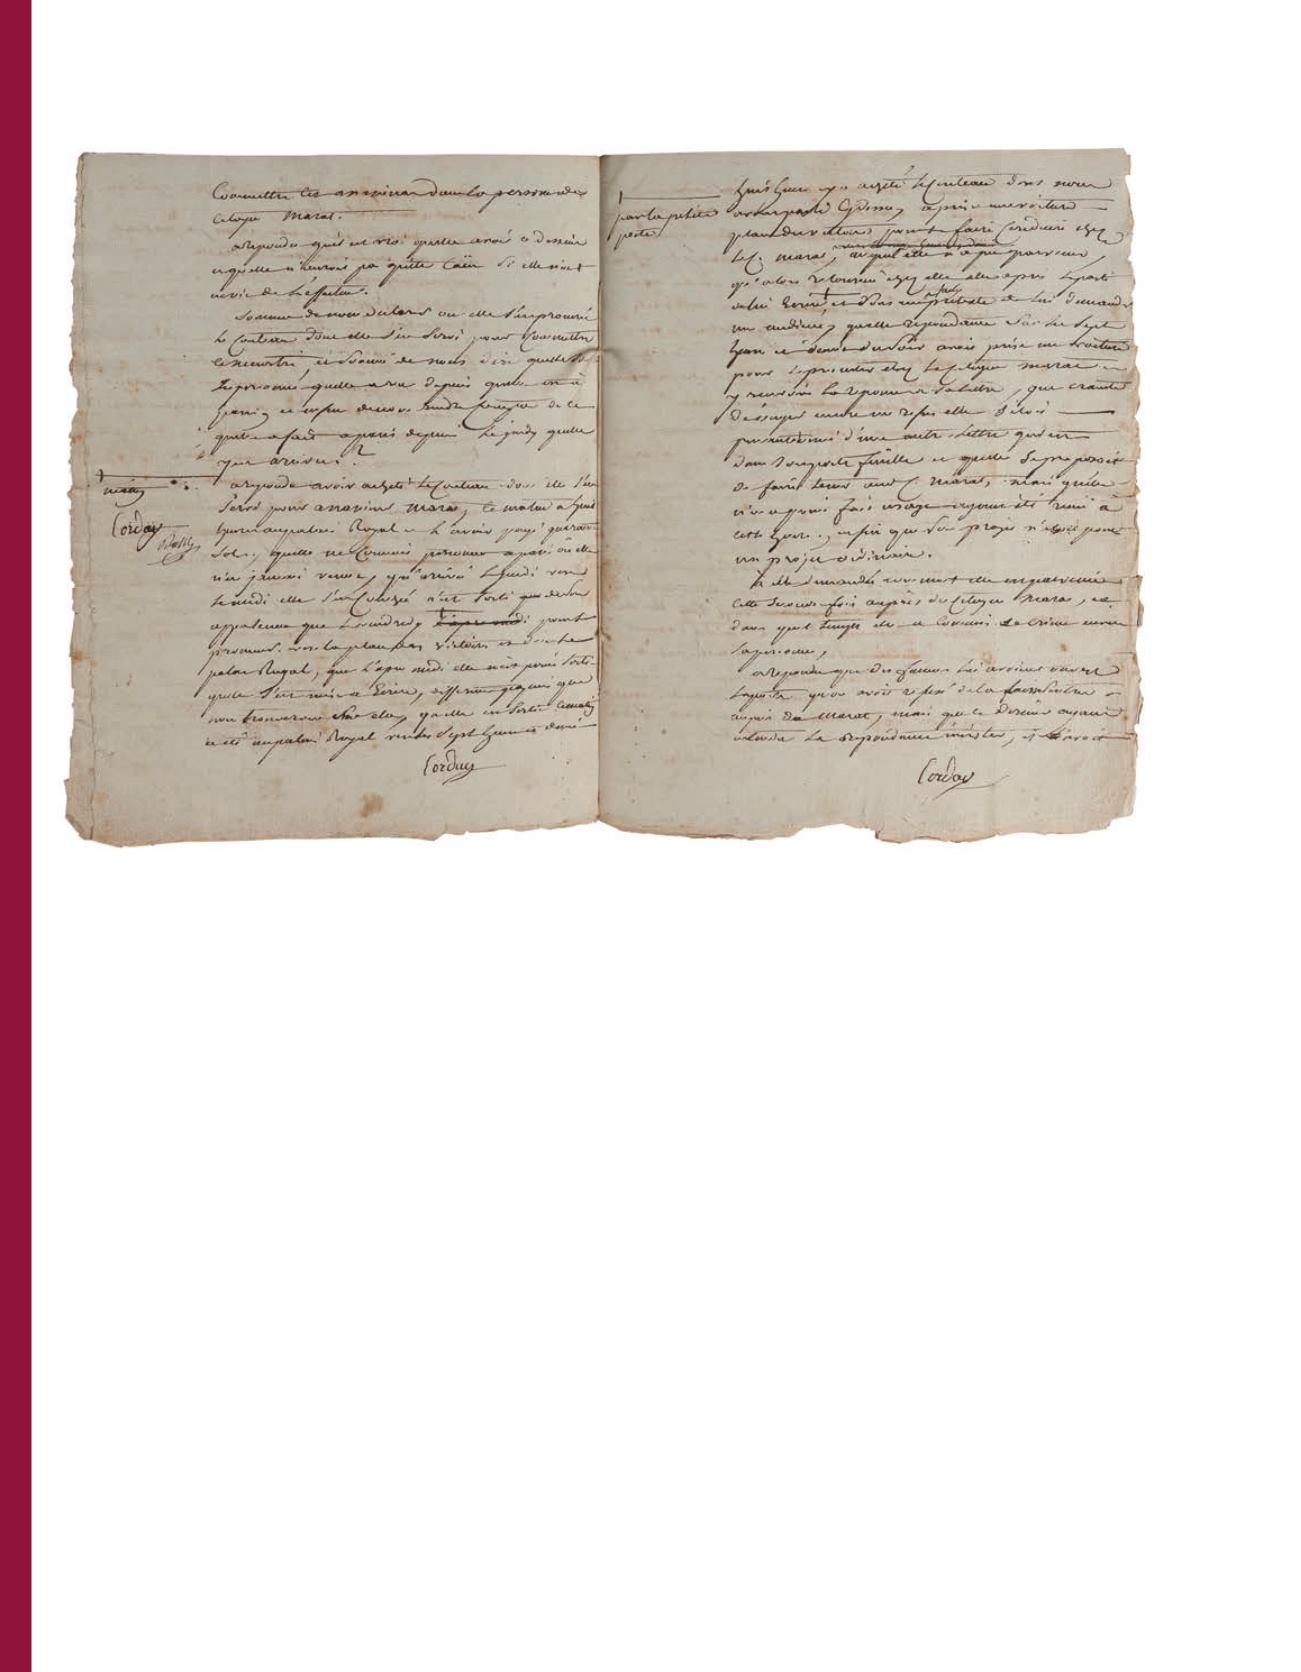 Commettre cet assassinat dans la personne du
citoyen Marat.
a repondu qu'il est vrai quelle avoit ce dessein
et quelle n'heuroit pas quitté Caën si elle n'eut
eu envie de l'effectuer.
Sommée de nous declarer où elle s'est procuré
le couteau dont elle s'est servi pour commettre
ce meurtre, et sommé de nous dire quelles sont
les personnes quelle a vu depuis quelle est à
paris, et enfin de nous rendre compte de ce
quelle a fait a paris depuis le jeudy quelle
y est arrivée ?
a repondu avoir acheté le couteau dont elle s'est
servi pour assassiner Marat, ce matin a huit
heures au palais Royal et l'avoir payé quarante
sols, quelle ne connoit personne a paris où elle
n'est jamais venue, qu'arrivé le jeudi vers
le midi elle s'est couchée n'est sorti que de son
appartement que vendredy
promener vers la place des victoires et dans le
palais Royal, que l'apres midi elle n'est point sorti
quelle s'est mis a Ecrire, differents papiers que
nous trouverons sur elle, quelle est sortie ce matin
a été au palais Royal vers les sept heures et demie
Corday
matin
Corday
par la petite
poste
huit heures y a acheté le couteau dont nous
avons parlé cy dessus, a pris une voiture
place des victoires pour se faire conduire chez
le C. Marat, auquel elle n'a pu parvenir,
qu'alors retournée chez elle elle a pris le parti
de lui Ecrire, et sous un faux pretexte de lui demander
une audience, quelle
heures et demie du soir avoit prise une voiture
pour se presenter chez le citoyen Marat et
y recevoir la reponse a sa lettre, que crainte
d'essuyer encore un refus elle s'etoit
precautionné d'une autre lettre qui est
dans son porte feuille et quelle se proposoit
de faire tenir aux C. Marat, mais quelle
n'en a point fait usage ayant été reçu à
cette heure, enfin que son projet n'étoit point
un projet ordinaire.
A elle demandé comment elle est parvenue
cette seconde fois aupres du Citoyen Marat, et
dans quel temps elle a commis le crime envers
sa personne,
a repondu que des femmes lui avoient ouvert
la porte, qu'on avoit refusé de la faire
aupres de Marat, mais que ce dernier ayant
entendu la repondante insister, il
Corday